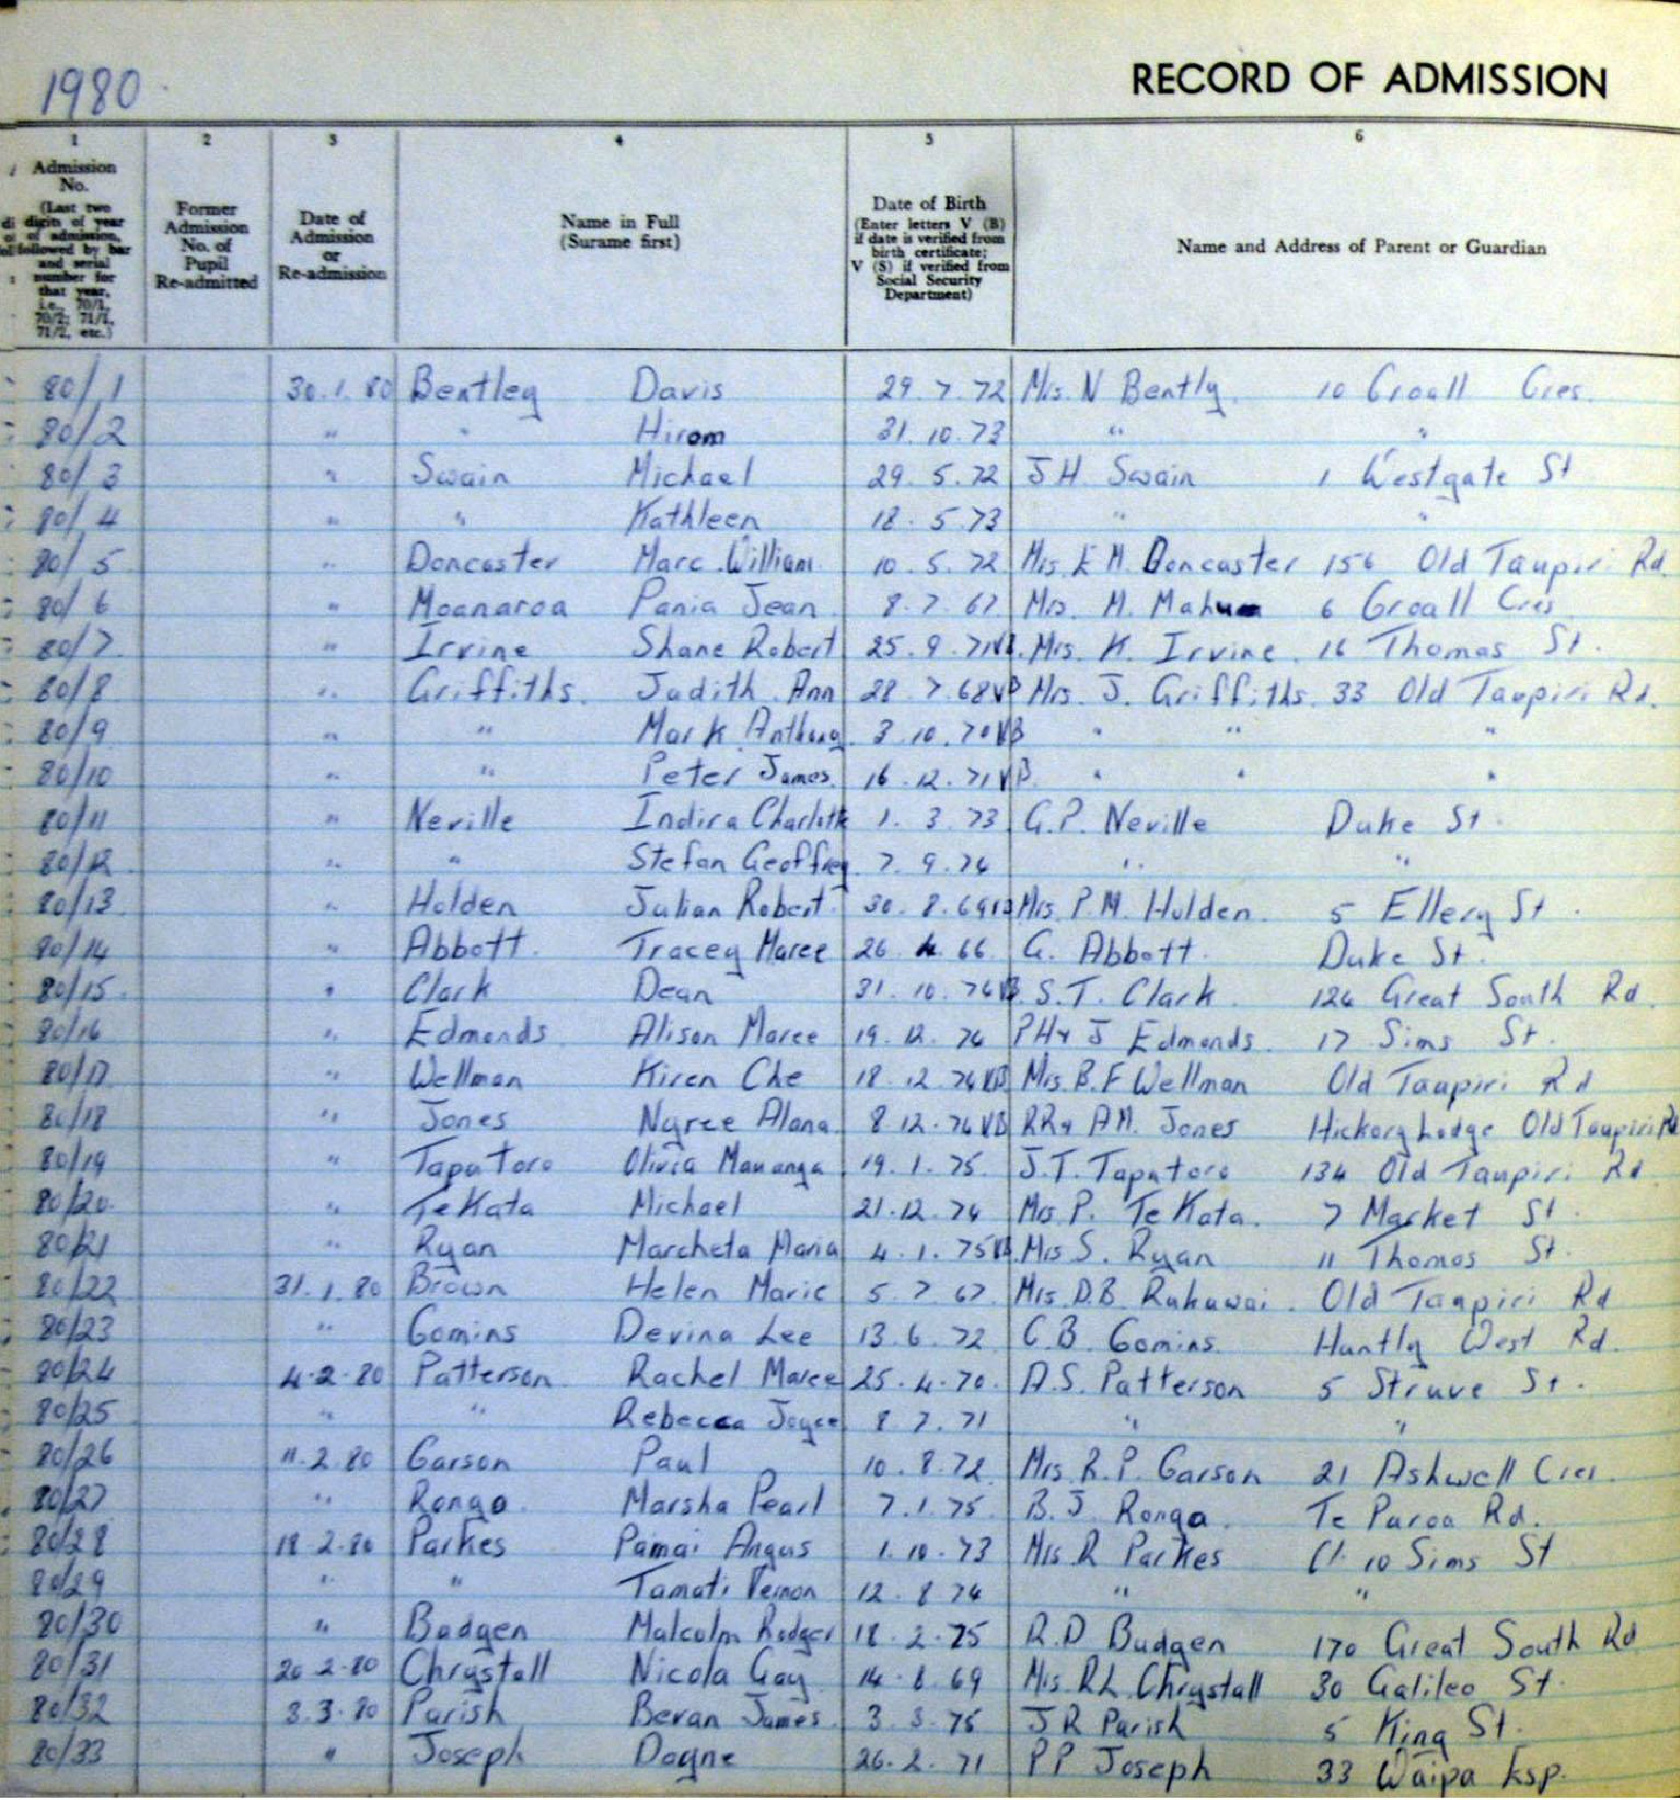 1980
RECORD OF ADMISSION
1 2 3 4 5 6
Admission No. (Last two digits of year of admission, followed by bar and serial number for that year, i.e., 70/1, 70/2; 71/1, 71/2, etc.)
Former Admission No. of Pupil Re-admitted
Date of Admission or Re-admission
Name in Full (Surame first)
Date of Birth (Enter letters V (B) if date is verified from birth certificate; V (S) if verified from Social Security Department)
Name and Address of Parent or Guardian
80/1 30.1.80 Bentley Davis 29.7.72 Mrs. N Bently 10 Croall Cres.
80/2 " " Hirom 31.10.73 " "
80/3 " Swain Michael 29.5.72 J H Swain 1 Westgate St
80/4 " " Kathleen 18.5.73 " "
80/5 " Doncaster Marc William 10.5.72 Mrs. E M. Doncaster 156 Old Taupiri Rd.
80/6 " Moanaroa Pania Jean 8.7.67 Mrs. M. 6 Croall Cres
80/7 " Irvine Shane Robert 25.9.71VB. Mrs. K. Irvine. 16 Thomas St.
80/8 " Griffiths. Judith Ann 28.7.68VB Mrs. J. Griffiths. 33 Old Taupiri Rd.
80/9 " " Mark Anthony. 3.10.70VB " " "
80/10 " " Peter James. 16.12.71VB. " " "
80/11 " Neville Indira Charlotte 1.3.73 G.P. Neville Duke St.
80/12 " " Stefan Geoffrey. 7.9.74 " "
80/13 " Holden Julian Robert 30.8.69VB Mrs. P.M. Holden. 5 Ellery St.
80/14 " Abbott. Tracey Maree 26.4.66 G. Abbott. Duke St.
80/15 " Clark Dean 31.10.74VB. S.T. Clark 124 Great South Rd.
80/16 " Edmonds Alison Maree 19.12.74 PH & J Edmonds. 17 Sims St.
80/17 " Wellman Kiren Che 18.12.74VB Mrs. B.F Wellman Old Taupiri Rd
80/18 " Jones Nyree Alana. 8.12.74VB RR & AM. Jones Hickory Lodge Old Taupiri Rd
80/19 " Taputoro Olivia 19.1.75. J.T. Taputoro 134 Old Taupiri Rd
80/20 " TeKata Michael 21.12.74 Mrs P. Te Kata. 7 Market St.
80/21 " Ryan Marcheta Maria 4.1.75VB. Mrs S. Ryan 11 Thomas St.
80/22 31.1.80 Brown Helen Marie 5.7.67. Mrs. D.B. Rahuwai. Old Taupiri Rd
80/23 " Comins Devina Lee 13.6.72 C B. Comins. Huntly West Rd.
80/24 4.2.80 Patterson Rachel Maree 25.4.70. A.S. Patterson 5 Struve St.
80/25 " " Rebecca Joyce 8.7.71 " "
80/26 11.2.80 Garson Paul 10.8.72 Mrs. R.P. Garson 21 Ashwell Cres.
80/27 " Ronga Marsha Pearl 7.1.75 B.J. Ronga. Te Paroa Rd.
80/28 18.2.80 Parkes Pamai Angus 1.10.73 Mrs R Parkes 10 Sims St
80/29 " " Tamati Vernon 12.8.74 " "
80/30 " Budgen Malcolm Rodger 18.2.75 R.D Budgen 170 Great South Rd
80/31 20.2.80 Chrystall Nicola Gay 14.8.69 Mrs. R.L. Chrystall 30 Galileo St.
80/32 3.3.80 Parish Bevan James. 3.3.75 J R Parish 5 King St.
80/33 " Joseph Dayne 26.2.71 P P Joseph 33 Waipa Esp.